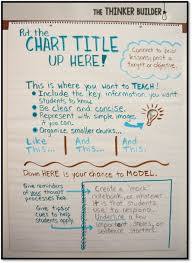 THE THINKER BUILDER
Put the
CHART TITLE
UP HERE!
Connect to prior
lessons, post a
target or objective.
This is where you want to TEACH!
Include the key information you want
students to know.
Be clear and concise.
Represent with simple images
if you can.
Organize smaller chunks...
Like This...
And This...
And This...
Down HERE is your chance to MODEL.
Give reminders
of your thought
processes here.
Give tips or
cues to help
students apply.
Create a "mock"
notebook, or whatever
it is that students
use to respond.
Underline a few
important steps, or
sentence starters.